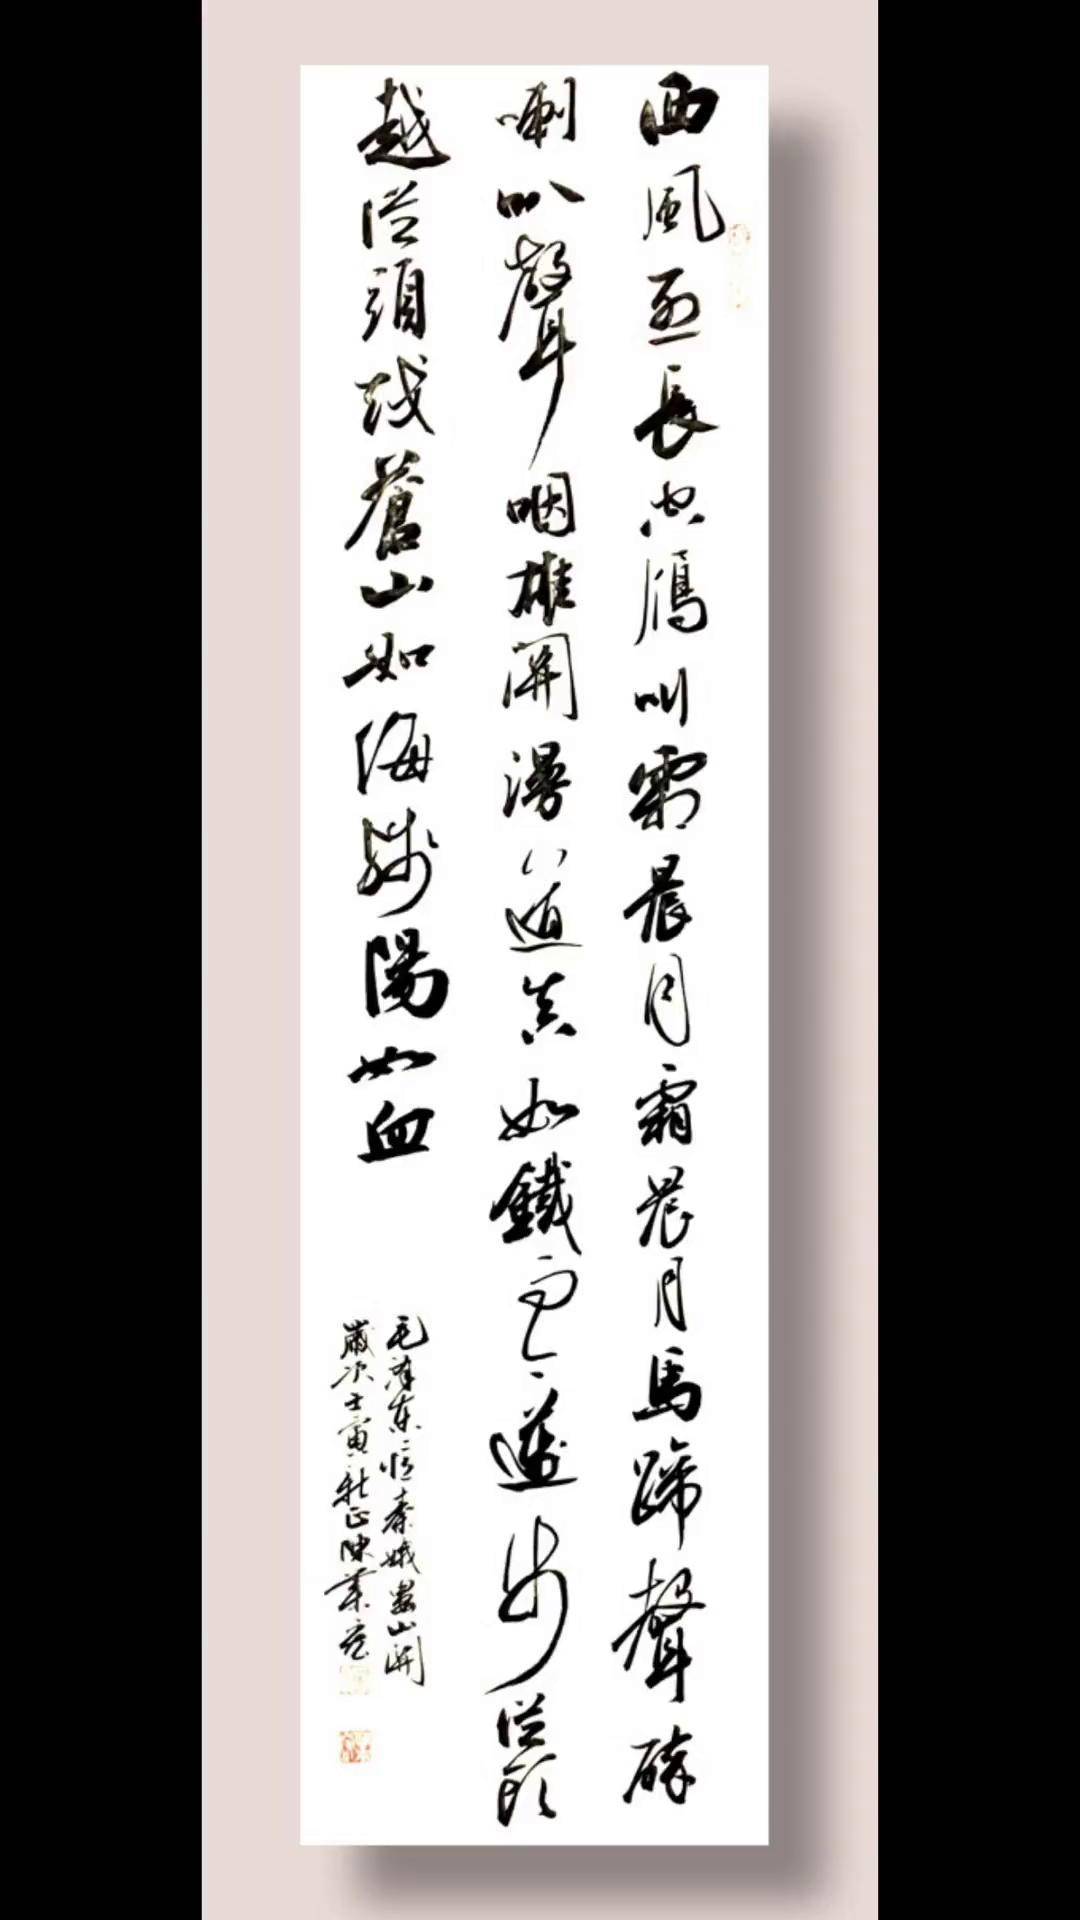 西風烈長空鴈叫霜晨月霜晨月馬蹄聲碎
喇叭聲咽雄關漫道真如鐵而今邁步從頭
越從頭越蒼山如海殘陽如血
毛澤東憶秦娥婁山關
歲次壬寅新正陳業